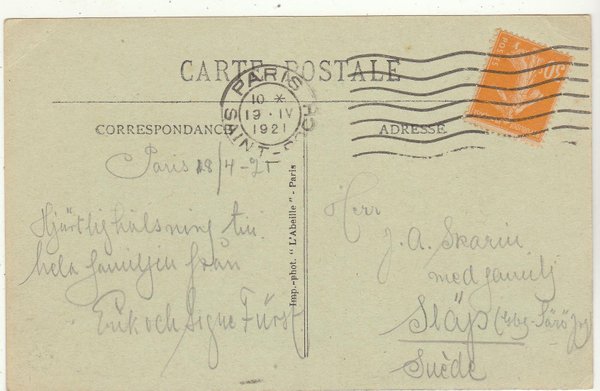 CARTE POSTALE
PARIS
10 *
19 · IV
1921
POSTES
CORRESPONDANCE
ADRESSE
Paris 18/4-21
Hjärtlig hälsning till
hela familjen från
Erik och Signe Fürst
Imp.-phot. "L'Abeille" - Paris
Herr
J. A. Skarin
med familj
Släp (Gbg-Särö Jvg)
Suède